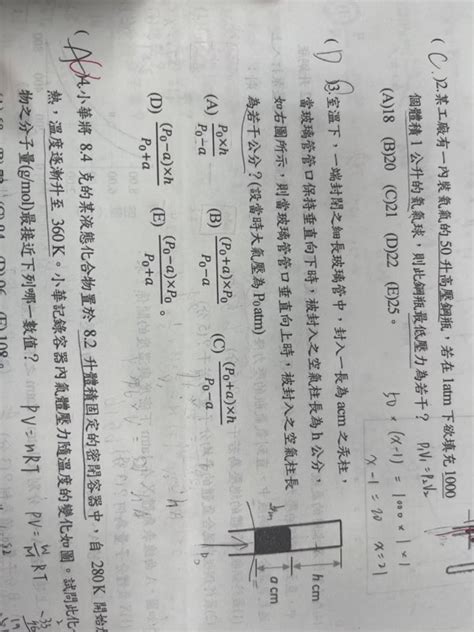 (C)12.某工廠有一內裝氦氣的50升高壓鋼瓶，若在1atm下欲填充1000
個體積1公升的氦氣球，則此鋼瓶最低壓力為若干？ P₁V₁=P₂V₂
(A)18 (B)20 (C)21 (D)22 (E)25。
50×(x-1)=1000×1×1
x-1=20 x=21
(D)13.室溫下，一端封閉之細長玻璃管中，封入一長為acm之汞柱，
當玻璃管管口保持垂直向下時，被封入之空氣柱長為h公分，
如右圖所示，則當玻璃管管口垂直向上時，被封入之空氣柱長
為若干公分？(設當時大氣壓為P₀atm)
(A) P₀×h/P₀-a (B) (P₀+a)×h/P₀-a (C) (P₀+a)×h/P₀-a
(D) (P₀-a)×h/P₀+a (E) (P₀-a)×P₀/P₀+a。
h cm
a cm
(A)14.小華將8.4克的某液態化合物置於8.2升體積固定的密閉容器中，自280K開始加
熱，溫度逐漸升至360K。小華記錄容器內氣體壓力隨溫度的變化如圖。試問此化
物之分子量(g/mol)最接近下列哪一數值？
PV=nRT
PV=w/M RT
(E)108。